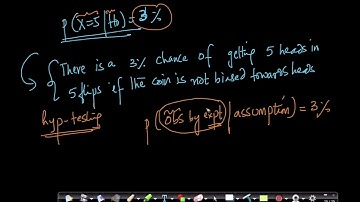 P(X=5|H0) = 3%
There is a 3% chance of getting 5 heads in
5 flips if the coin is not biased towards heads
hyp-testing
P(obs by expt | assumption) = 3%